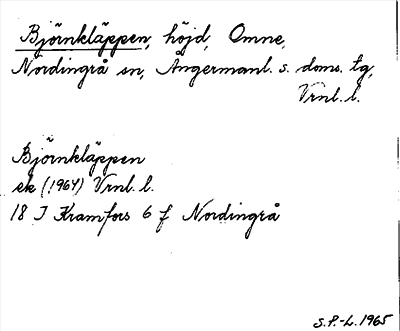 Björnkläppen, höjd, Omne,
Nordingrå sn, Ångermanl. s. doms. tg,
Vrnl. l.
Björnkläppen
ek (1964) Vrnl. l.
18 I Kramfors 6 f Nordingrå
S.P.-L. 1965